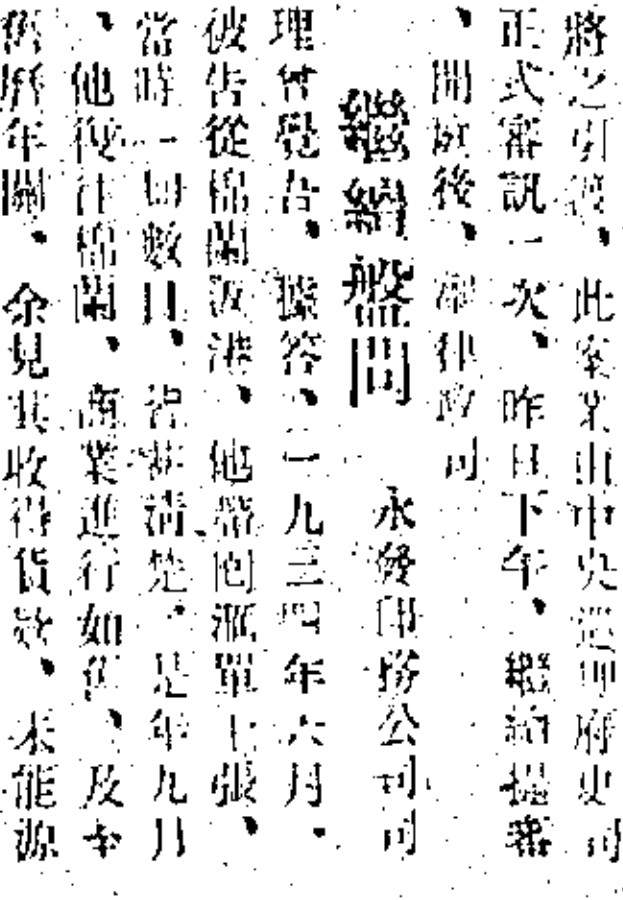 將之引渡、此案業由中央巡理府史司
正式審訊一次、昨日下午、繼續提審
、開庭後、律政司
繼續盤問 永發印務公司司
理曾覺吾、據答、一九三四年六月、
彼告從棉蘭返港、他帶回滙單七張、
當時一切數目、皆算清楚、是年九月
、他復往棉蘭、商業進行如舊、及至
舊曆年關、余見其收得貨款、未能源